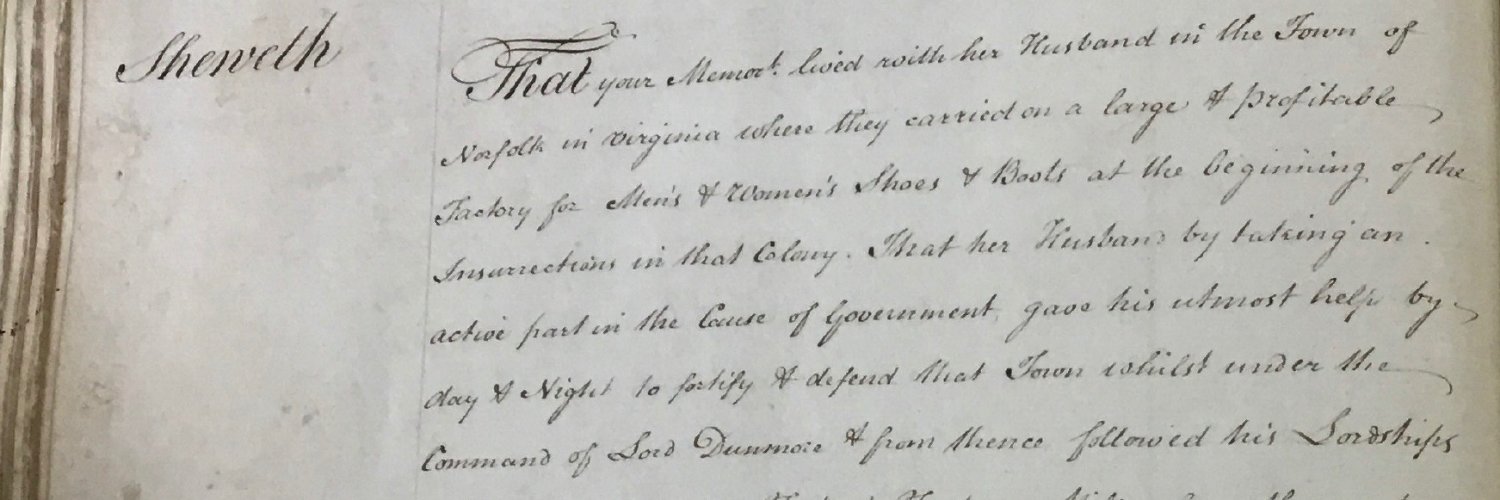 Sheweth That your Memort. lived with her Husband in the Town of
Norfolk in Virginia where they carried on a large & profitable
Factory for Men's & Women's Shoes & Boots at the beginning of the
Insurrections in that Colony. That her Husband by taking an
active part in the Cause of Government, gave his utmost help by
day & Night to fortify & defend that Town whilst under the
Command of Lord Dunmore & from thence followed his Lordships